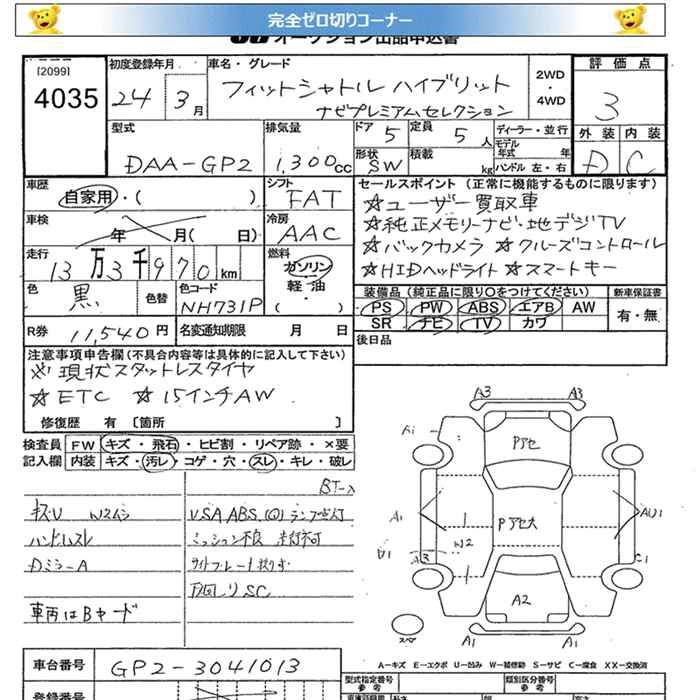 完全ゼロ切りコーナー
オークション出品申込書
[2099]
4035
初度登録年月
24 3月
車名・グレード
フィットシャトル ハイブリット
ナビプレミアムセレクション
2WD
・
4WD
評価点
3
外装 内装
D C
型式
DAA-GP2
排気量
1,300cc
ドア 5
定員 5人
ディーラー・並行
モデル年式 年
形状 SW
積載 kg
ハンドル 左・右
車歴
自家用・( )
シフト
FAT
車検
年 月( 日)
冷房
AAC
走行
13万3千970km
燃料
ガソリン
軽油
( )
色
黒
色替
色コード
NH731P
R券 11,540円
名変通知期限 月 日
セールスポイント(正常に機能するものに限ります)
☆ユーザー買取車
☆純正メモリーナビ・地デジTV
☆バックカメラ ☆クルーズコントロール
☆HIDヘッドライト ☆スマートキー
装備品(純正品に限り○をつけてください)
PS PW ABS エアB AW
SR ナビ TV カワ
新車保証書
有・無
後日品
注意事項申告欄(不具合内容等は具体的に記入して下さい)
※現状スタットレスタイヤ
☆ETC ☆15インチAW
修復歴 有 [箇所 ]
検査員 FW キズ・飛石・ヒビ割・リペア跡・×要
記入欄 内装 キズ・汚レ・コゲ・穴・スレ・キレ・破レ
キズU
ハンドルスレ
DミラーA
車両はBヤード
VSA ABS (!) ランプ点灯
ミッション不良
下回りSC
A3 A3
Pアセ
A1
Pアセ大
A1 AU1
W2
B1 A3 C1
A2
スペア
A1 A1
A-キズ E-エクボ U-凹み W-補修跡 S-サビ C-腐食 XX-交換済
車台番号 GP2-3041013
型式指定番号
参考
類別区分番号
参考
登録番号
長さ
幅
高さ